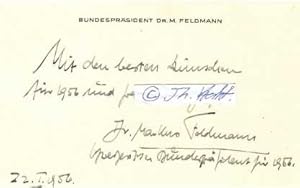 BUNDESPRÄSIDENT DR. M. FELDMANN
Mit den besten Wünschen
für 1956 und
Dr. Markus Feldmann
Bundespräsident für 1956.
22. I. 1956.